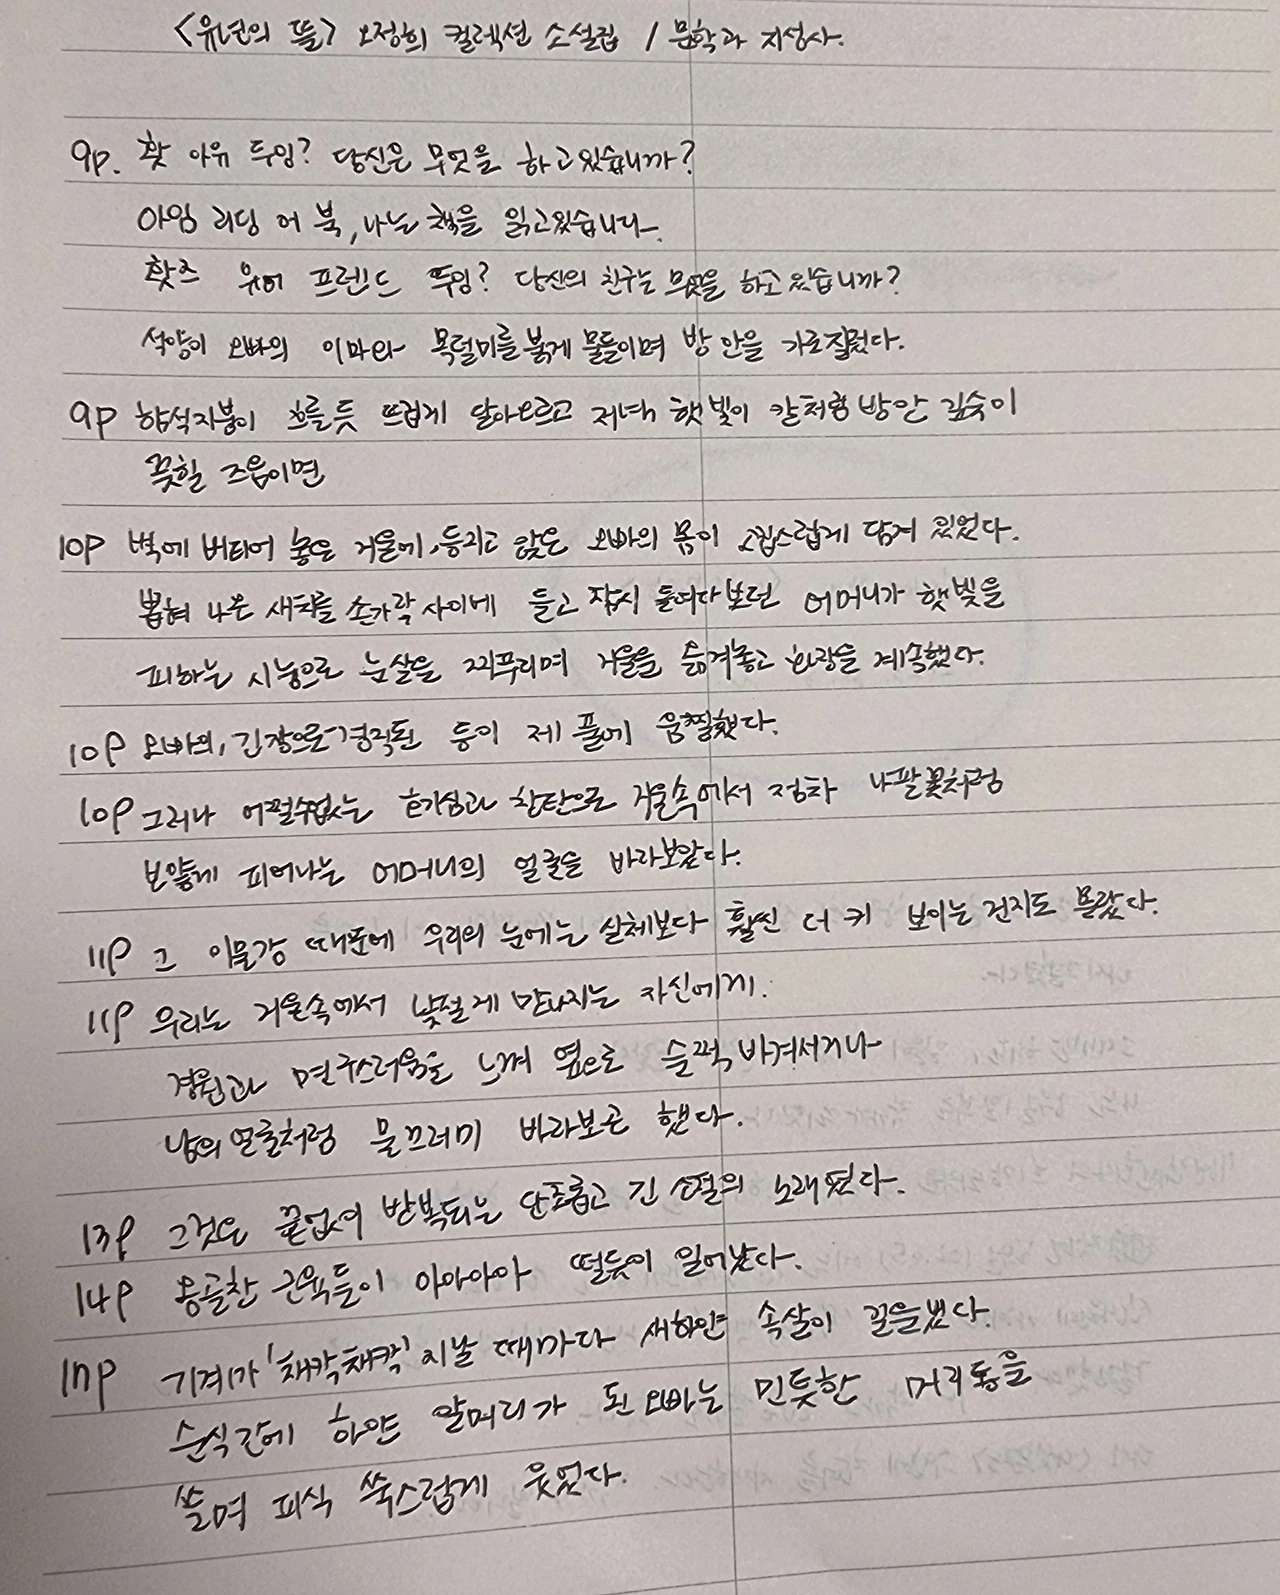 <유년의 뜰> 오정희 컬렉션 소설집 / 문학과 지성사.
9p. 홧 아유 두잉? 당신은 무엇을 하고있습니까?
아임 리딩 어 북, 나는 책을 읽고있습니다.
홧즈 유어 프렌드 두잉? 당신의 친구는 무엇을 하고 있습니까?
석양이 오빠의 이마와 목덜미를 붉게 물들이며 방 안을 가로질렀다.
9p 함석지붕이 흐를듯 뜨겁게 달아오르고 저녁 햇빛이 칼처럼 방안 깊숙이
꽂힐 즈음이면
10p 벽에 버티어 놓은 거울에, 등지고 앉은 오빠의 몸이 고집스럽게 담겨 있었다.
뽑혀 나온 새치를 손가락 사이에 들고 잠시 들여다보던 어머니가 햇빛을
피하는 시늉으로 눈살을 찌푸리며 거울을 옮겨놓고 화장을 계속했다.
10p 오빠의, 긴장으로 경직된 등이 제 풀에 움찔했다.
10p 그러나 어쩔수없는 호기심과 찬탄으로 거울속에서 점차 나팔꽃처럼
보얗게 피어나는 어머니의 얼굴을 바라보았다.
11p 그 이물감 때문에 우리의 눈에는 실체보다 훨씬 더 커 보이는 건지도 몰랐다.
11p 우리는 거울속에서 낯설게 만나지는 자신에게.
경원과 면구스러움을 느껴 옆으로 슬쩍 비켜서거나
남의 얼굴처럼 물끄러미 바라보곤 했다.
13p 그것은 끝없이 반복되는 단조롭고 긴 소절의 노래였다.
14p 옹골찬 근육들이 아아아아 떨듯이 일어났다.
17p 기계가 '채칵채칵' 지날 때마다 새하얀 속살이 길을냈다.
순식간에 하얀 알머리가 된 오빠는 민틋한 머리통을
쓸며 피식 쑥스럽게 웃었다.